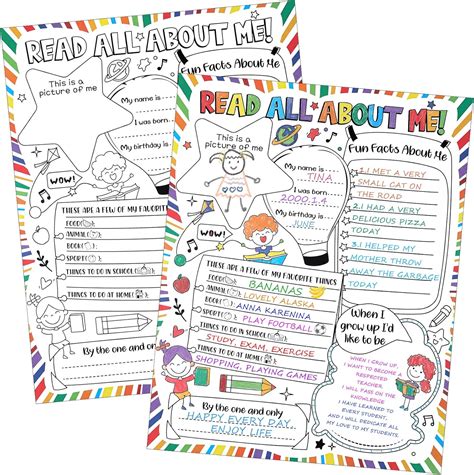 READ ALL ABOUT ME!
This is a
picture of me
Fun Facts About Me
My name is
I was born
My birthday is
WOW!
THESE ARE A FEW OF MY FAVORITE
FOOD
ANIMAL
BOOK
SPORT
THINGS TO DO IN SCHOOL
THINGS TO DO AT HOME
By the one and
READ ALL ABOUT ME!
This is a
picture of me
Fun Facts About Me
My name is
TINA
I was born
2000.1.4
My birthday is
JUNE
1.I MET A VERY
SMALL CAT ON
THE ROAD
2.I HAD A VERY
DELICIOUS PIZZA
TODAY
3.I HELPED MY
MOTHER THROW
AWAY THE GARBAGE
TODAY
WOW!
THESE ARE A FEW OF MY FAVORITE THINGS
FOOD BANANAS
ANIMAL LOVELY ALASKA
BOOK ANNA KARENINA
SPORT PLAY FOOTBALL
THINGS TO DO IN SCHOOL
STUDY, EXAM, EXERCISE
THINGS TO DO AT HOME
SHOPPING, PLAYING GAMES
When I
grow up I'd
like to be
WHEN I GROW UP,
I WANT TO BECOME A
RESPECTED
TEACHER
I WILL PASS ON THE
KNOWLEDGE
I HAVE LEARNED TO
EVERY STUDENT,
AND I WILL DEDICATE ALL
MY LOVE TO MY STUDENTS
By the one and only
HAPPY EVERY DAY,
ENJOY LIFE